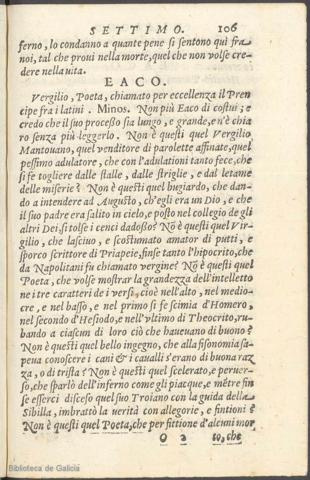 SETTIMO. 106
ferno, lo condanno a quante pene si sentono quì fra
noi, tal che proui nella morte, quel che non volse cre-
dere nella uita.
EACO.
Vergilio, Poeta, chiamato per eccellenza il Pren
cipe fra i latini. Minos. Non più Eaco di costui; e
credo che il suo processo sia lungo, e grande, e n'è chia
ro senza più leggerlo. Non è questi quel Vergilio
Mantouano, quel venditore di parolette affinate, quel
pessimo adulatore, che con l'adulationi tanto fece, che
si fe togliere dalle stalle, dalle striglie, e dal letame
delle miserie? Non è questi quel bugiardo, che dan-
do a intendere ad Augusto, ch'egli era un Dio, e che
il suo padre era salito in cielo, e posto nel collegio de gli
altri Dei, si tolse i cenci dadosso? Nō è questi quel Vir-
gilio, che lasciuo, e scostumato amator di putti, e
sporco scrittore di Priapeie, finse tanto l'hipocrito, che
da Napolitani fu chiamato vergine? Nō è questi quel
Poeta, che volse mostrar la grandezza dell'intelletto
ne i tre caratteri de i versi, cioè nell'alto, nel medio-
cre, e nel basso, e nel primo si fe scimia d'Homero,
nel secondo d'Hesiodo, e nell'vltimo di Theocrito, ru-
bando a ciascun di loro ciò che haueuano di buono?
Non è questi quel bello ingegno, che alla fisonomia sa-
peua conoscere i cani & i caualli s'erano di buona raz
za, o di trista? Non è questi quel scelerato, e peruer-
so, che sparlò dell'inferno come gli piacque, e mētre fin
se esserci disceso quel suo Troiano con la guida della
Sibilla, imbrattò la uerità con allegorie, e fintioni?
Non è questi quel Poeta, che per fittione d'alcuni mor
O 2 to, che
Biblioteca de Galicia